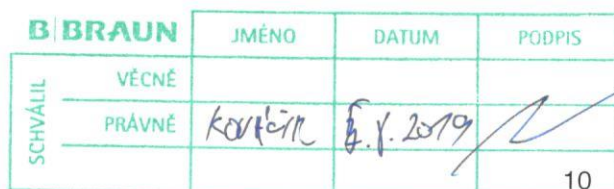 B|BRAUN JMÉNO DATUM PODPIS
SCHVÁLIL
VĚCNĚ
PRÁVNĚ 2019
10